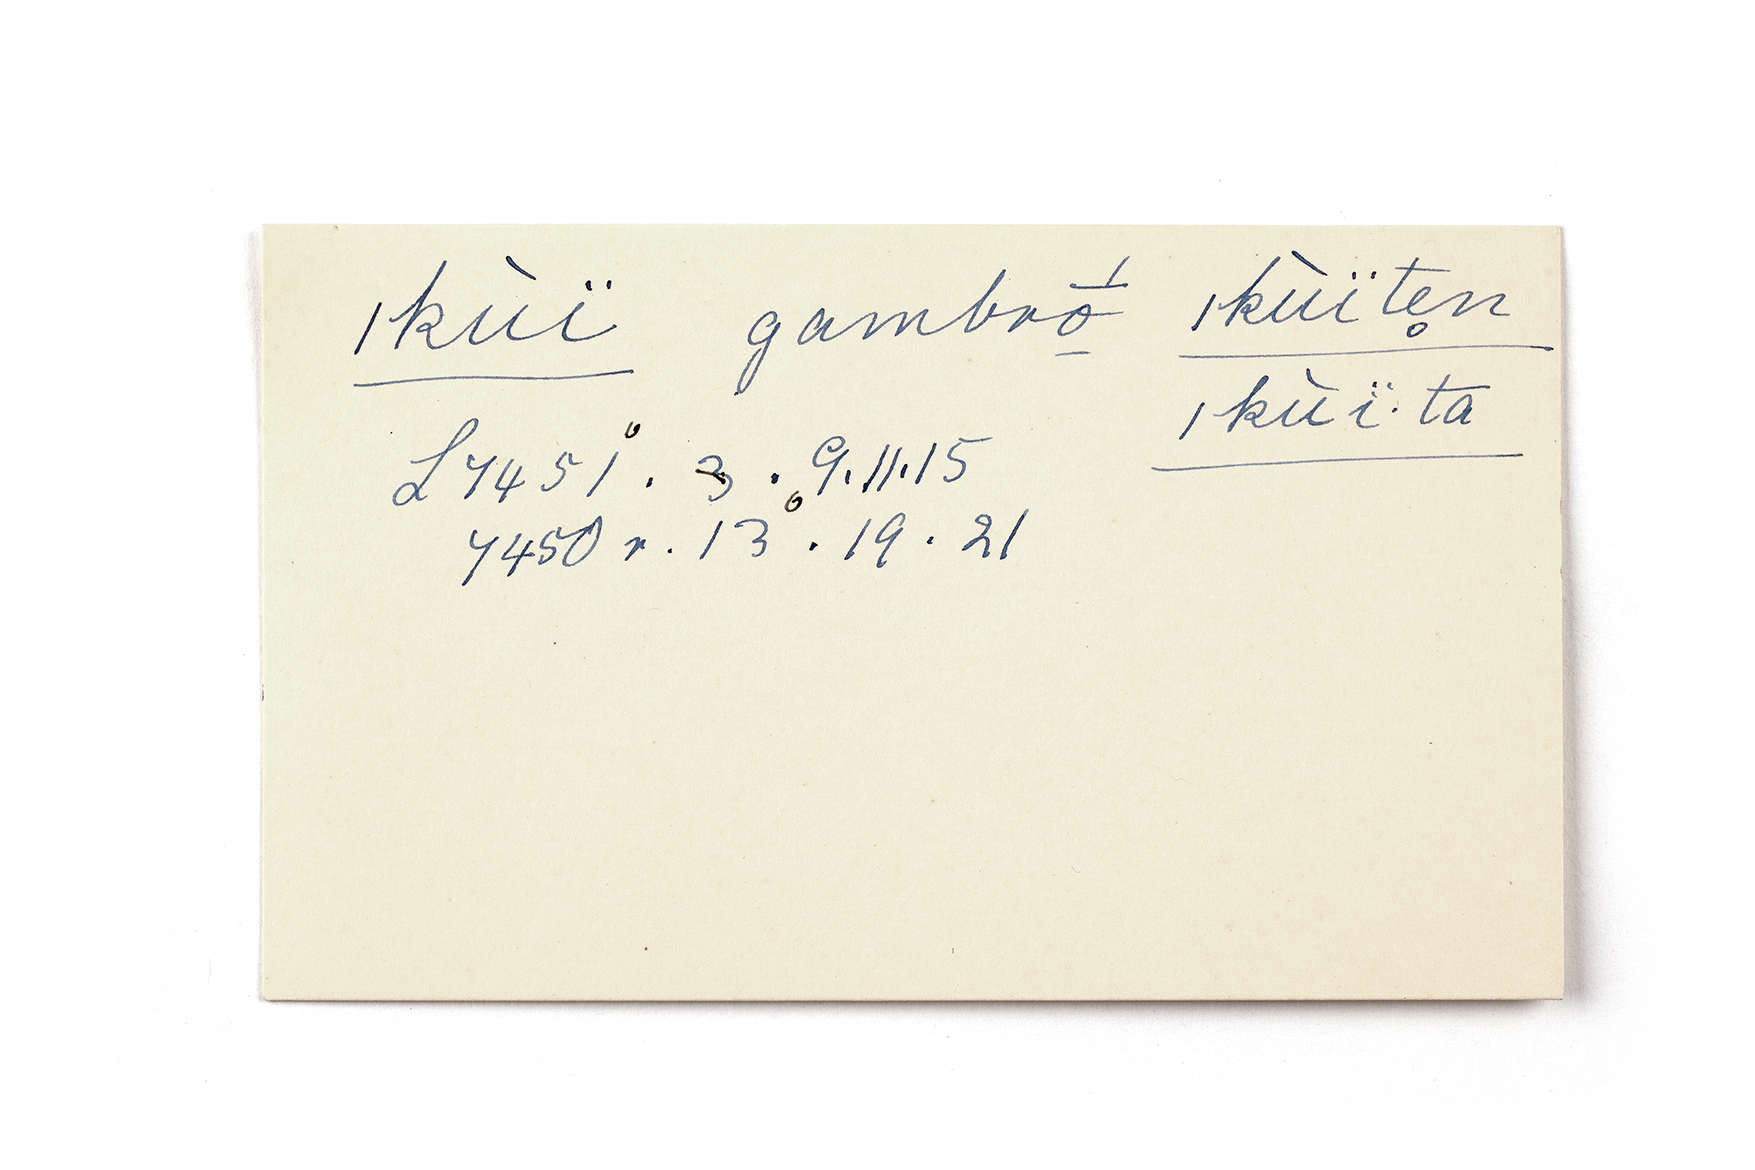 ıkùï gambrṓ̱ ıkùïtẹn
ıkùï·ta
L7451° . 3 . 9.11.15
7450 r . 13° . 19 . 21